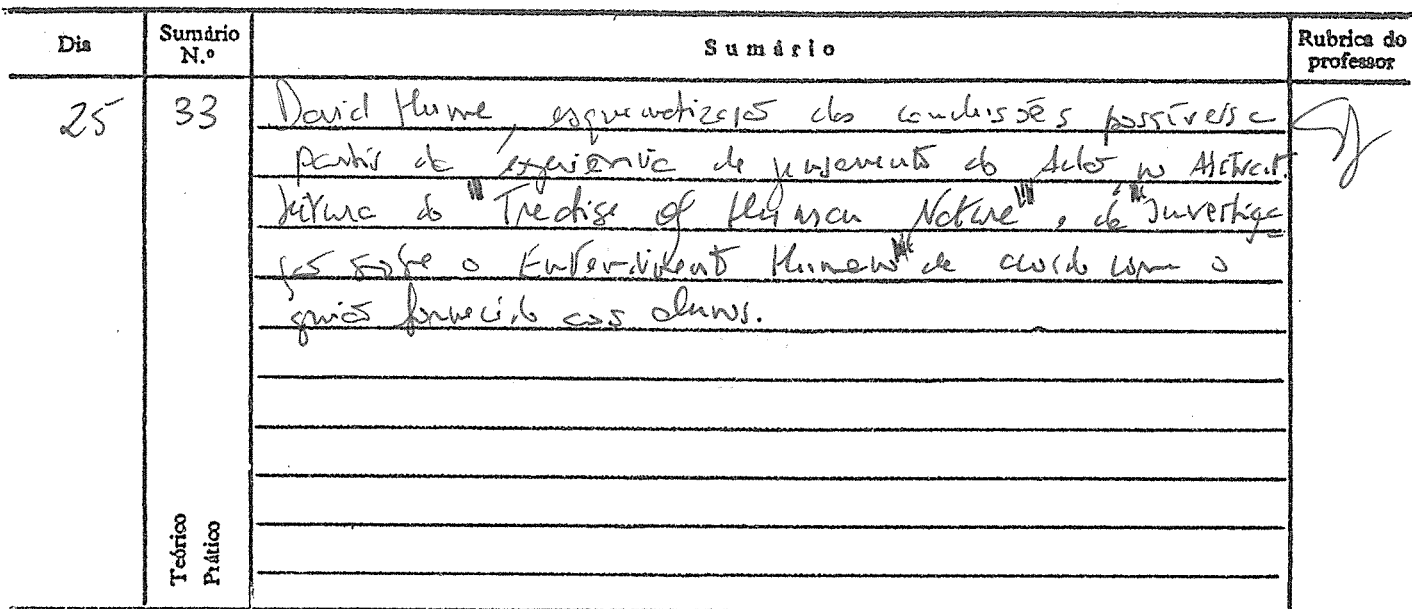 Dia
Sumário N.º
Sumário
Rubrica do professor
25
33
David Hume, esquematização das conclusões possíveis a
partir da experiência de pensamento do Adão no Abstract.
Leitura do "Treatise of Human Nature", da "Investiga
ção sobre o Entendimento Humano" de acordo com o
guião fornecido aos alunos.
Teórico
Prático